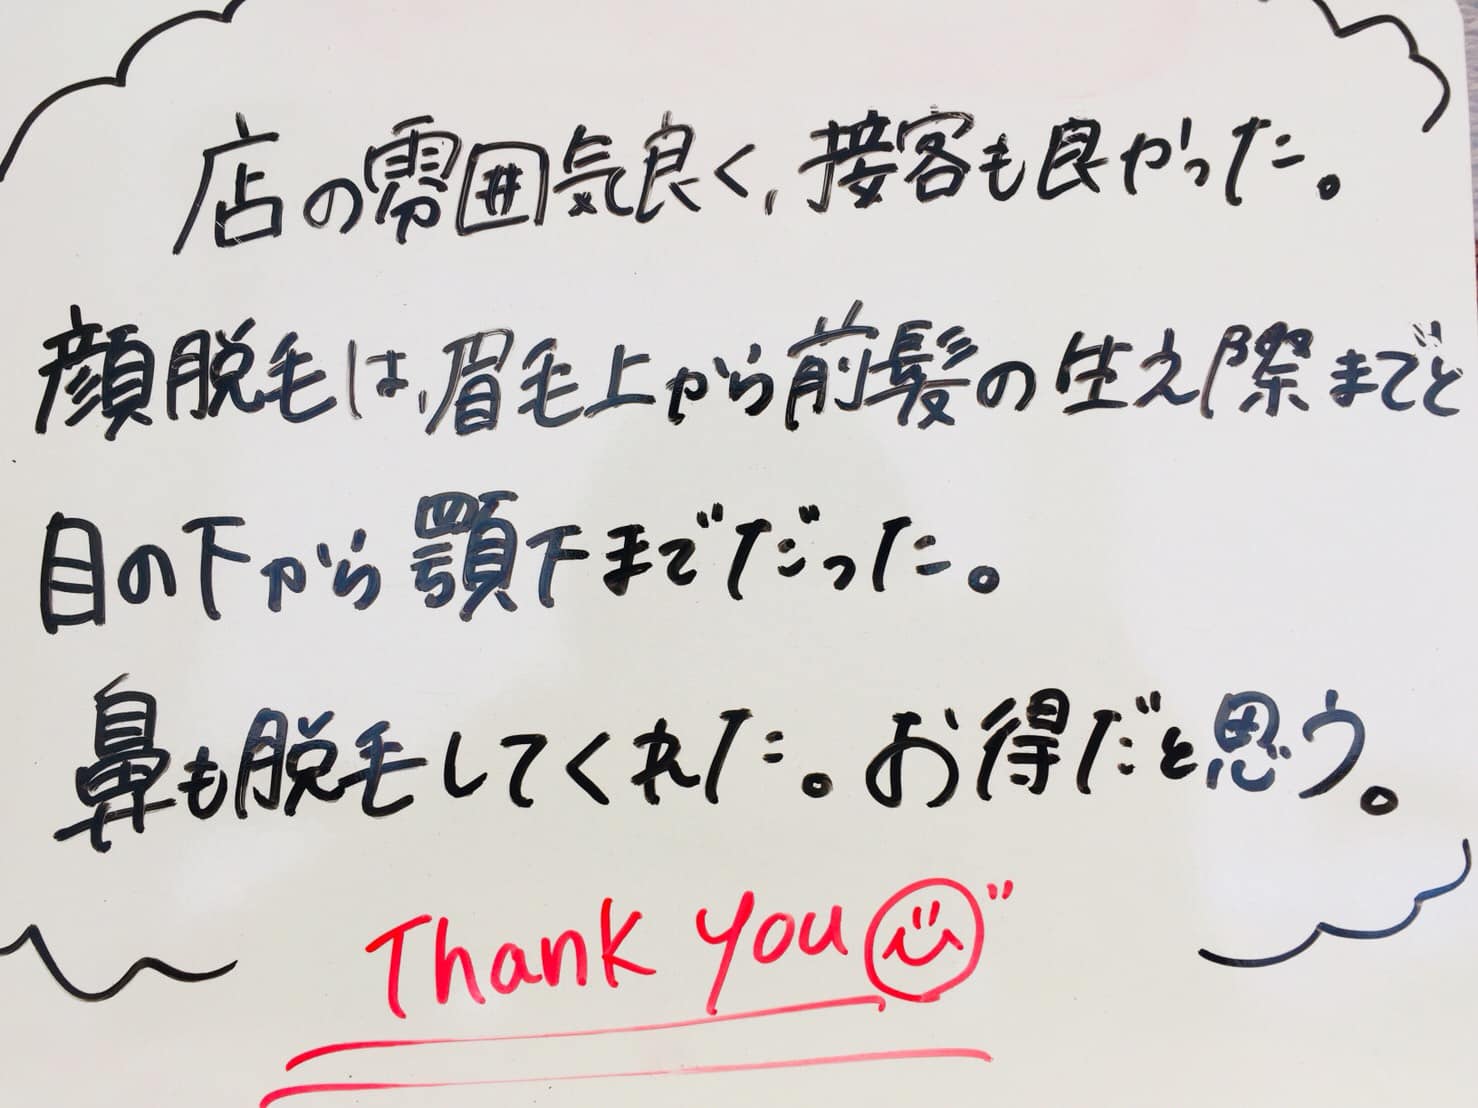 店の雰囲気良く、接客も良かった。
顔脱毛は、眉毛上から前髪の生え際までと
目の下から顎下までだった。
鼻も脱毛してくれた。お得だと思う。
Thank you